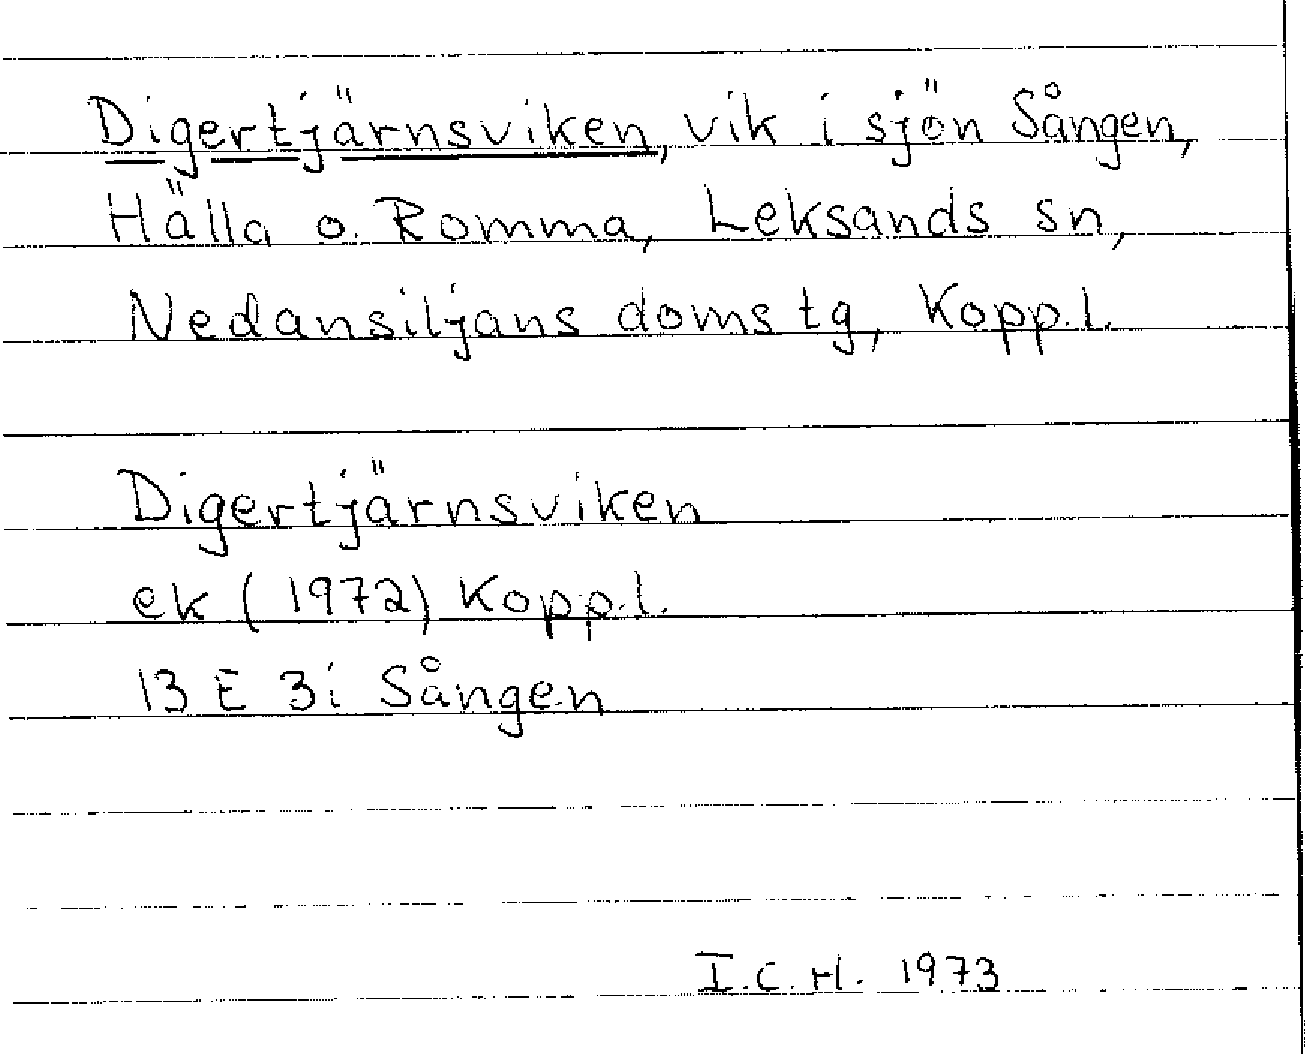 Digertjärnsviken, vik i sjön Sången,
Hälla o. Romma, Leksands sn,
Nedansiljans doms tg, Kopp.l.
Digertjärnsviken
ek (1972) Kopp.l.
13 E 3i Sången
I.C.H. 1973